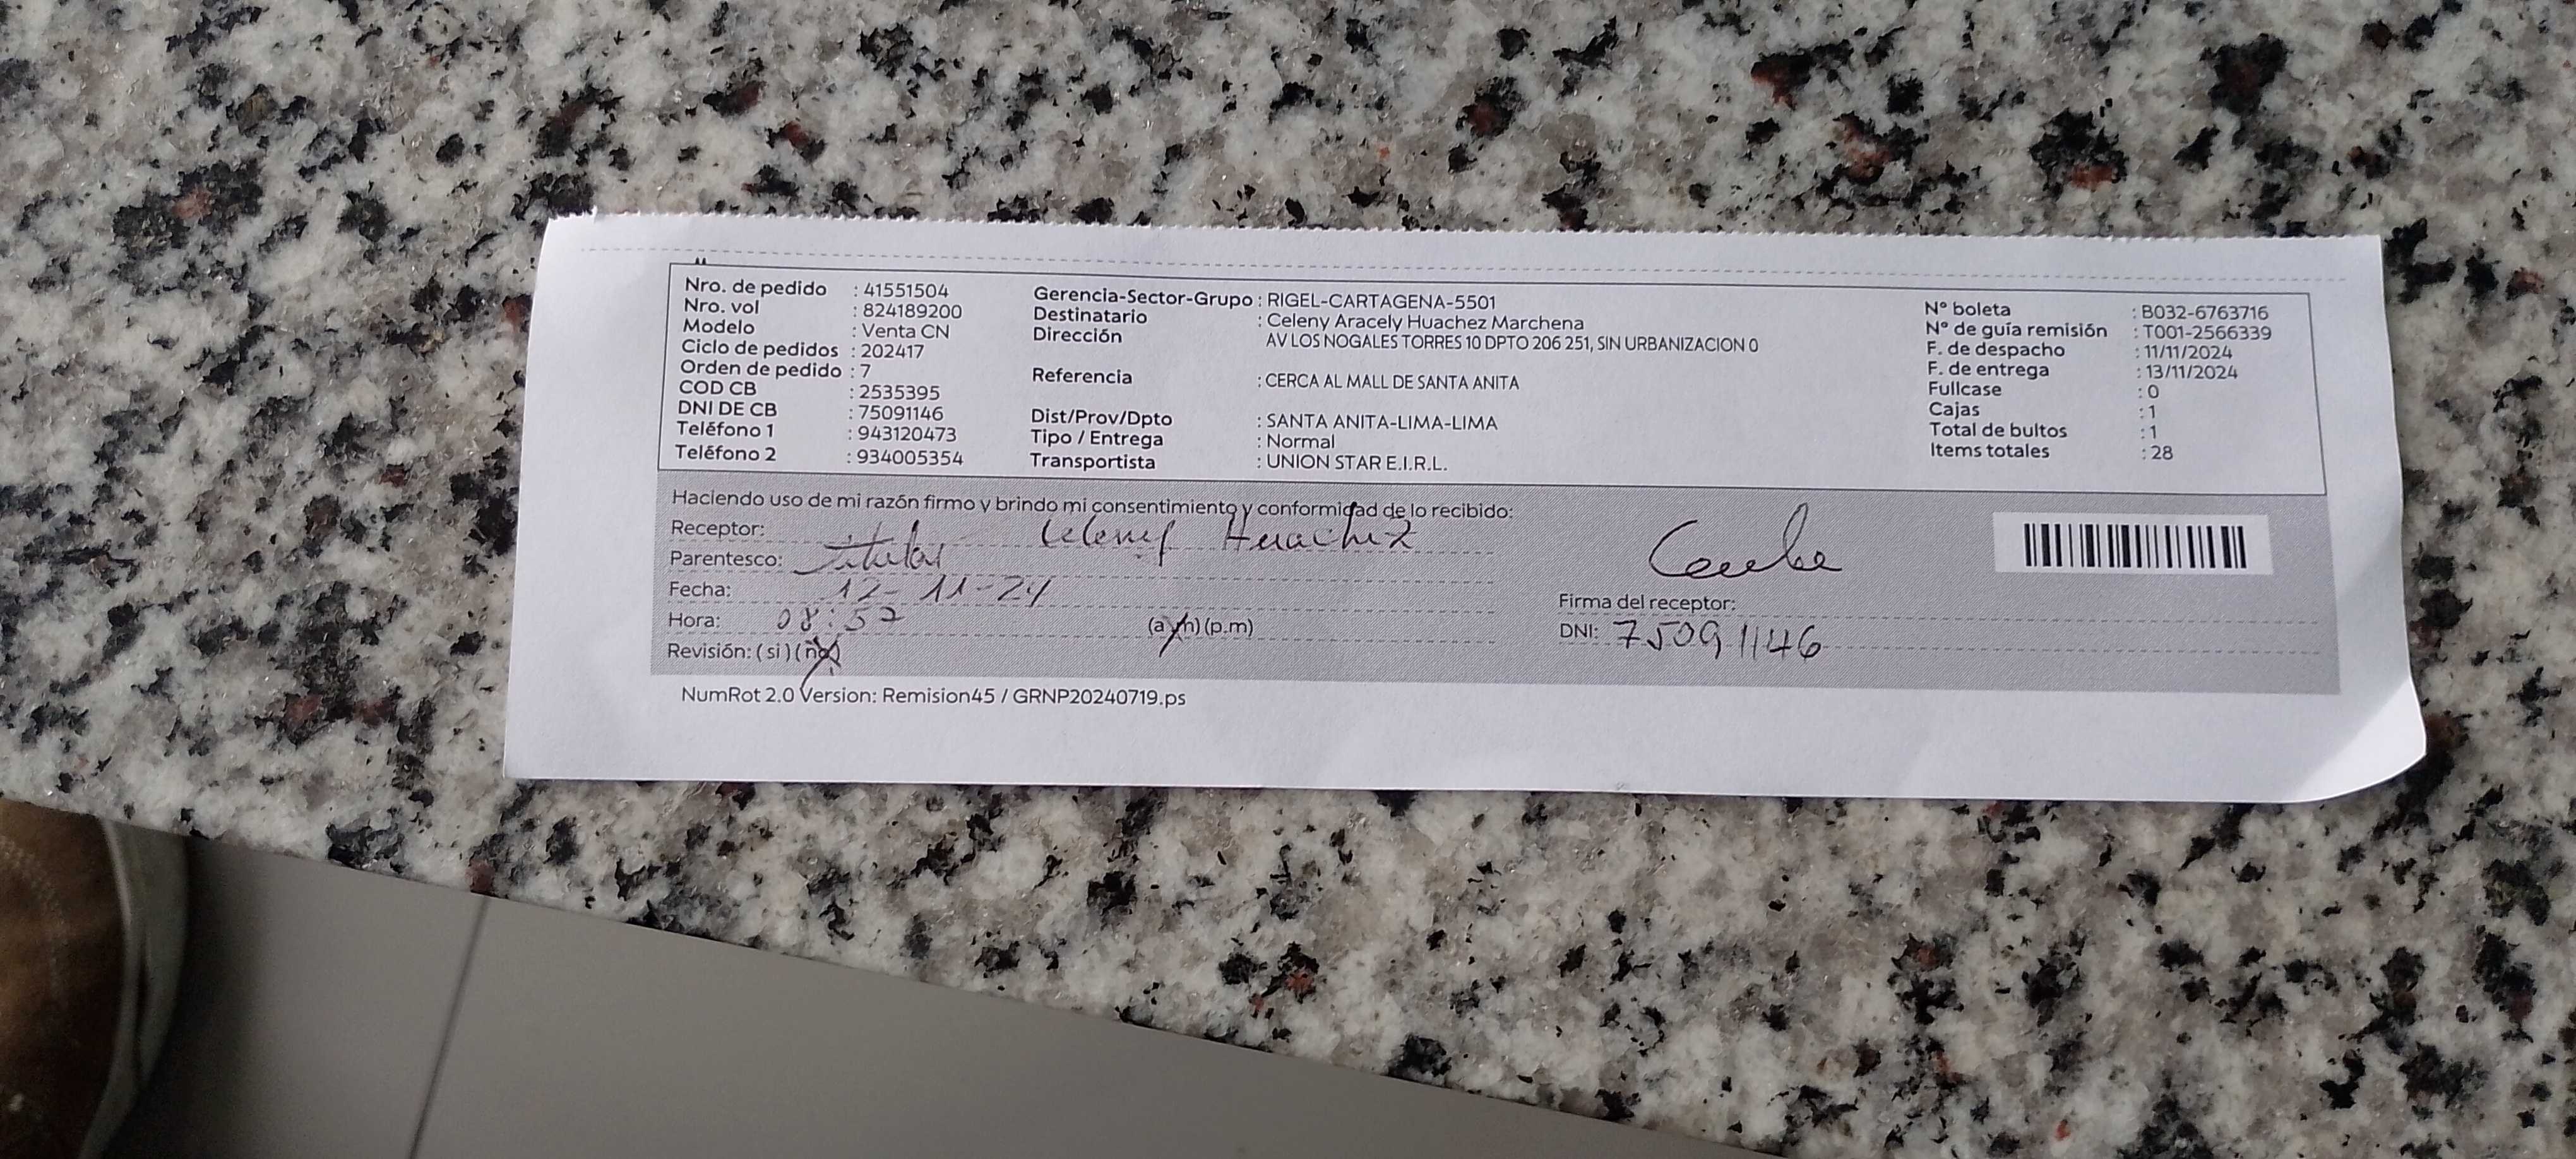 Nro. de pedido : 41551504
Nro. vol : 824189200
Modelo : Venta CN
Ciclo de pedidos : 202417
Orden de pedido : 7
COD CB : 2535395
DNI DE CB : 75091146
Teléfono 1 : 943120473
Teléfono 2 : 934005354
Gerencia-Sector-Grupo : RIGEL-CARTAGENA-5501
Destinatario : Celeny Aracely Huachez Marchena
Dirección AV LOS NOGALES TORRES 10 DPTO 206 251, SIN URBANIZACION 0
Referencia : CERCA AL MALL DE SANTA ANITA
Dist/Prov/Dpto : SANTA ANITA-LIMA-LIMA
Tipo / Entrega : Normal
Transportista : UNION STAR E.I.R.L.
N° boleta : B032-6763716
N° de guía remisión : T001-2566339
F. de despacho : 11/11/2024
F. de entrega : 13/11/2024
Fullcase : 0
Cajas : 1
Total de bultos : 1
Items totales : 28
Haciendo uso de mi razón firmo y brindo mi consentimiento y conformidad de lo recibido:
Receptor: Celeny Huachez
Parentesco: titular
Fecha: 12-11-24
Hora: 08:57 (a.m) (p.m)
Revisión: (si) (no)
Firma del receptor:
DNI: 75091146
NumRot 2.0 Version: Remision45 / GRNP20240719.ps